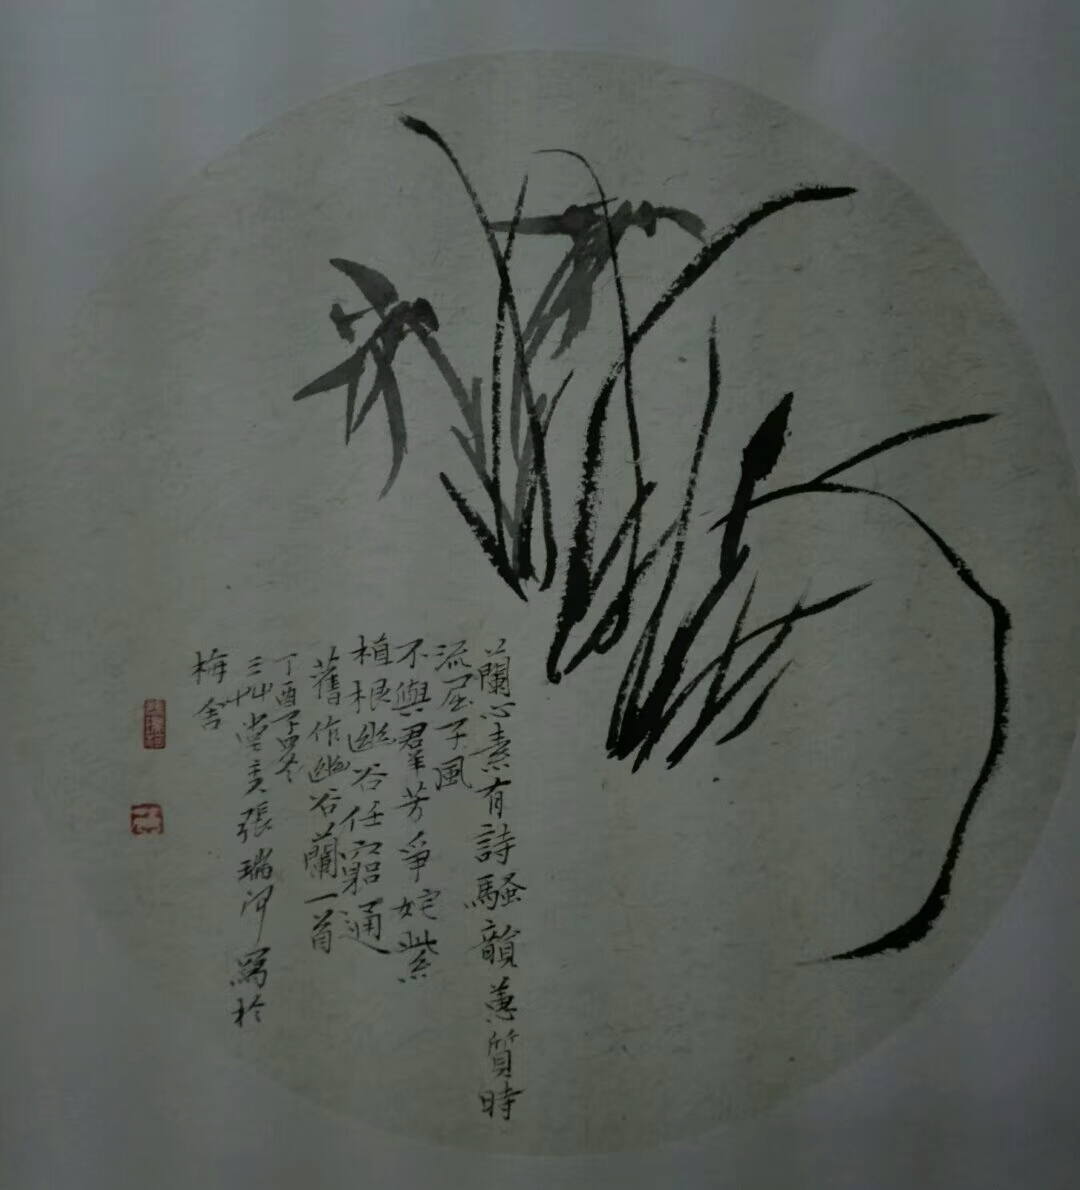 蘭心素有詩騷韻蕙質時
流屈子風
不與羣芳爭姹紫
植根幽谷任窮通
舊作幽谷蘭一首
丁酉孟冬
三艸堂主張瑞河寫於
梅舍